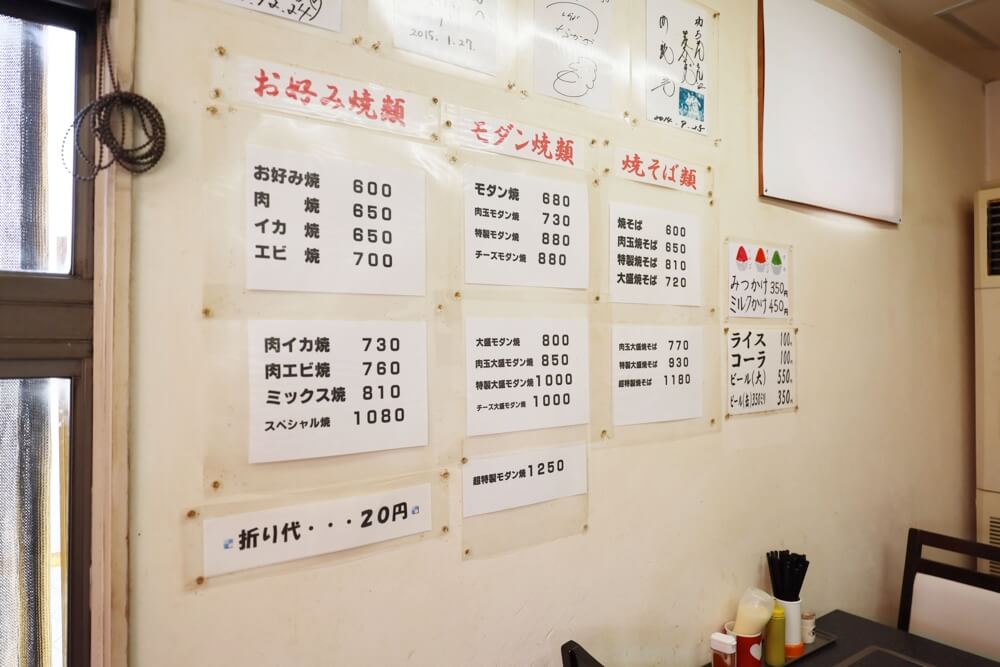 2.24)
2015.1.27.
お好み焼類
お好み焼 600
肉 焼 650
イカ 焼 650
エビ 焼 700
肉イカ焼 730
肉エビ焼 760
ミックス焼 810
スペシャル焼 1080
折り代・・・20円
モダン焼類
モダン焼 680
肉玉モダン焼 730
特製モダン焼 880
チーズモダン焼 880
大盛モダン焼 800
肉玉大盛モダン焼 850
特製大盛モダン焼 1000
チーズ大盛モダン焼 1000
超特製モダン焼 1250
焼そば類
焼そば 600
肉玉焼そば 650
特製焼そば 810
大盛焼そば 720
肉玉大盛焼そば 770
特製大盛焼そば 930
超特製焼そば 1180
みつかけ 350円
ミルクかけ 450円
ライス 100
コーラ 100
ビール(大) 550
ビール(缶)350ミリ 350